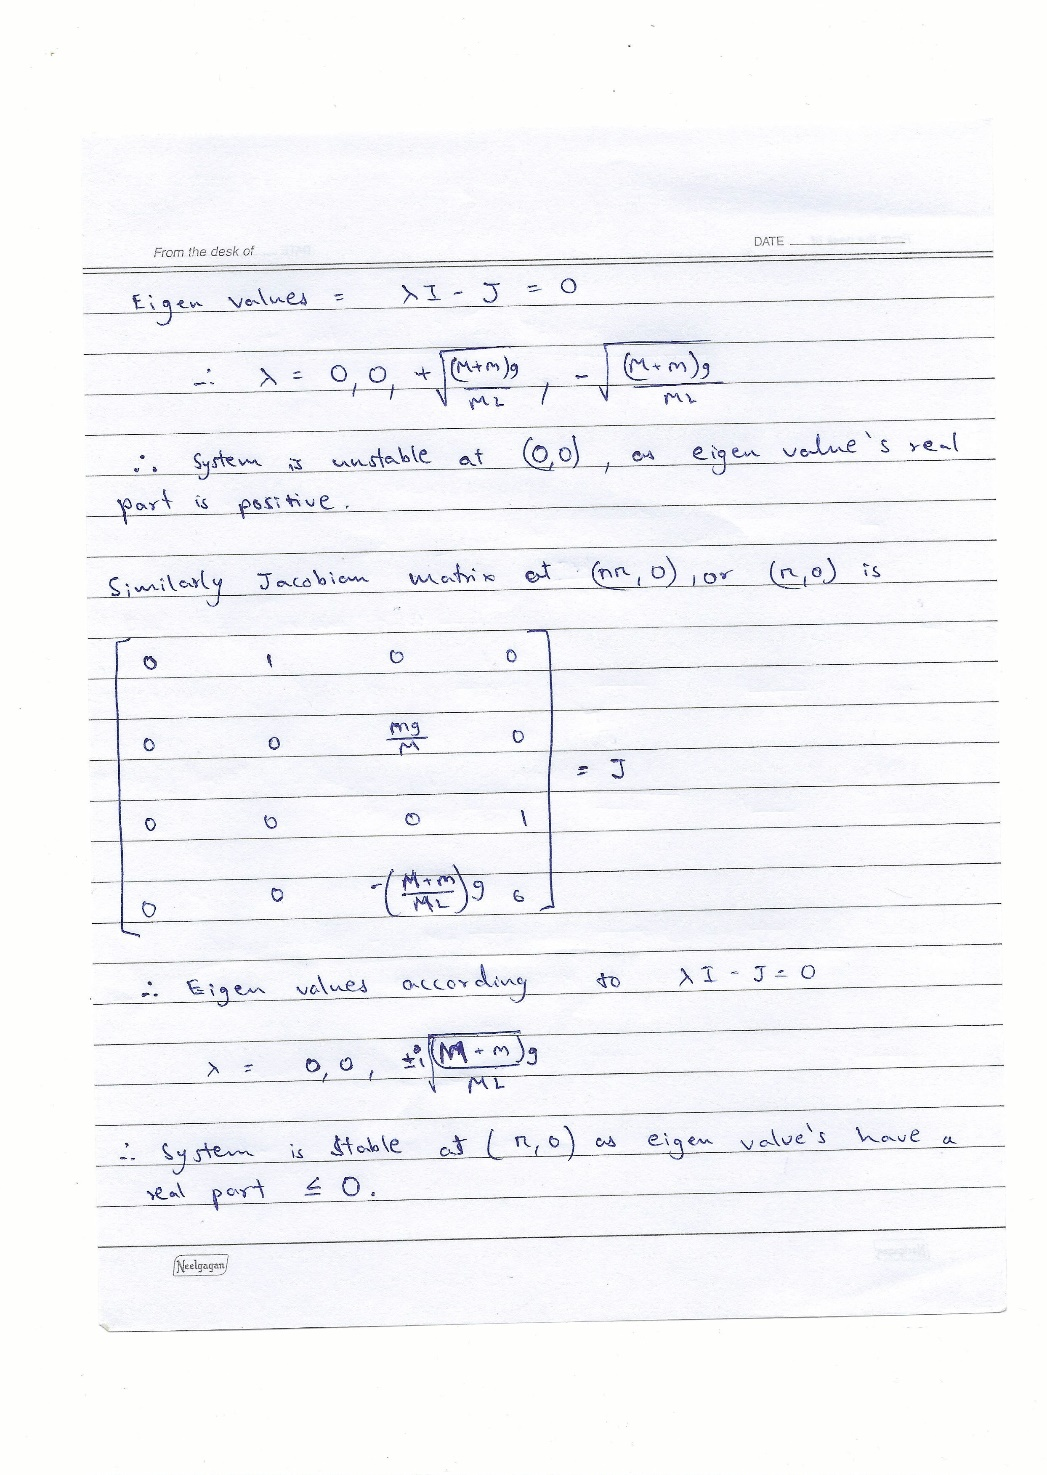 From the desk of
DATE
Eigen values = λI - J = 0
∴ λ = 0, 0, + √((M+m)g / ML) , - √((M+m)g / ML)
∴ System is unstable at (0,0) , as eigen value's real
part is positive.
Similarly Jacobian matrix at (nπ, 0) , or (π, 0) is
0 1 0 0
0 0 mg/M 0
= J
0 0 0 1
0 0 -((M+m)/ML)g 0
∴ Eigen values according to λI - J = 0
λ = 0, 0, ±i √((M+m)g / ML)
∴ System is stable at (π, 0) as eigen value's have a
real part ≤ 0.
Neelgagan